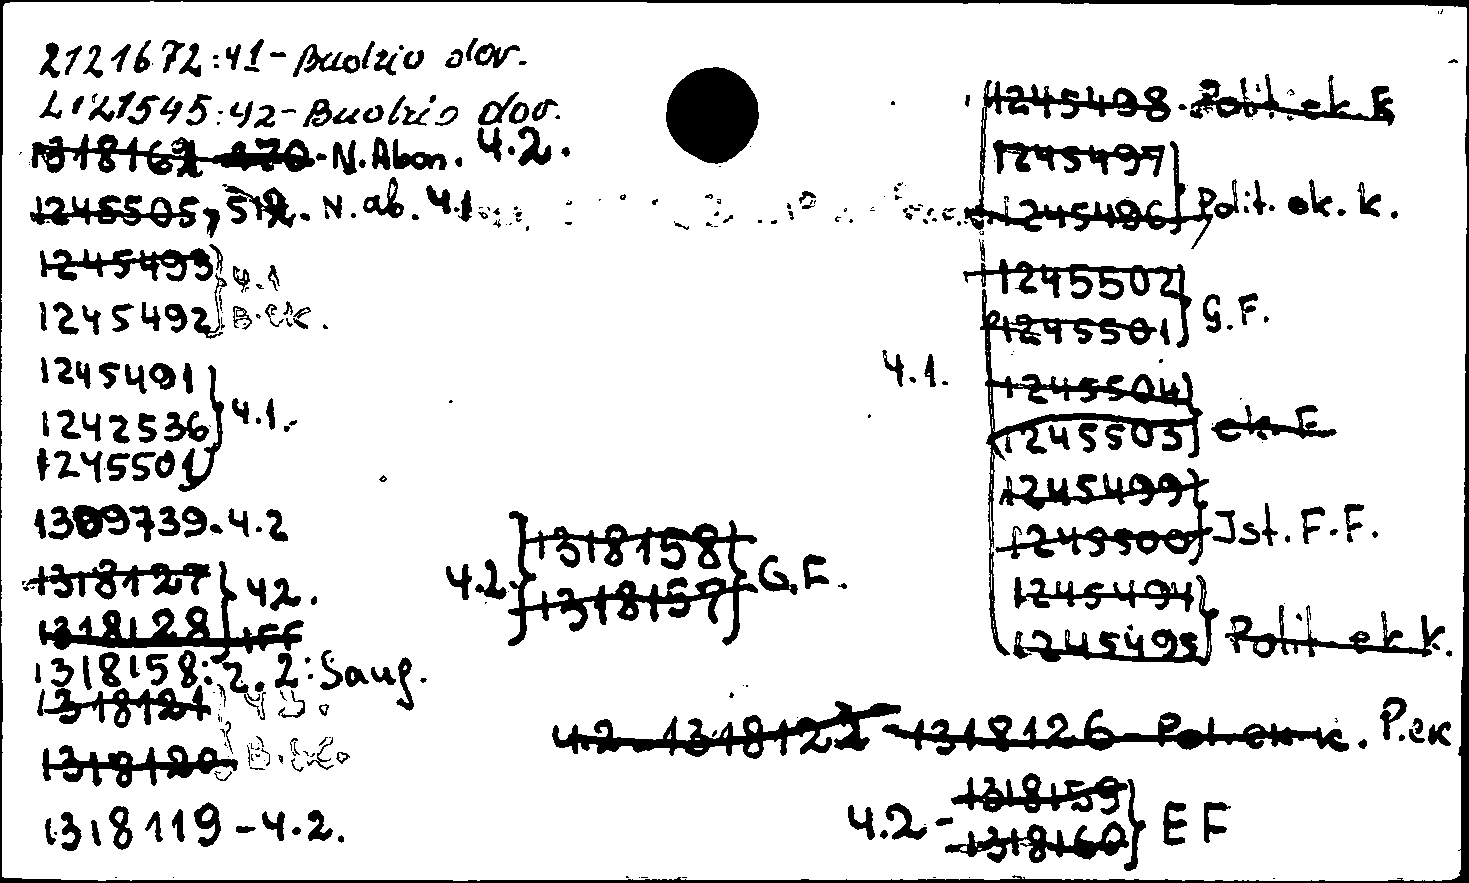 2121672:41-Budzio dov.
2121545:42-Budzio dov.
1318162-170-N.Abon. 4.2.
1245505, 512. N.ab. 4.1
1245493 } 4.1
1245492 } B.ek.
1245491
1242536 } 4.1.
1245501
1309739-4.2
1318127 } 42.
1318128 } IFF
1318158: 2.2: Saug.
1318121
1318120 }
1318119-4.2.
4.2. { 1318158 } G.F.
1318157
1245498. Polit. ek. F
1245497
1245496 } Polit. ek. k.
1245502
1245501 } G.F.
4.1.
1245504
1245503 } ek. F
1245499
1245500 } Ist. F.F.
1245494
1245495 } Polit-ek k.
4.2-1318122-1318126-Pol.ek-k. P.ek
4.2- 1318159
1318160 } EF